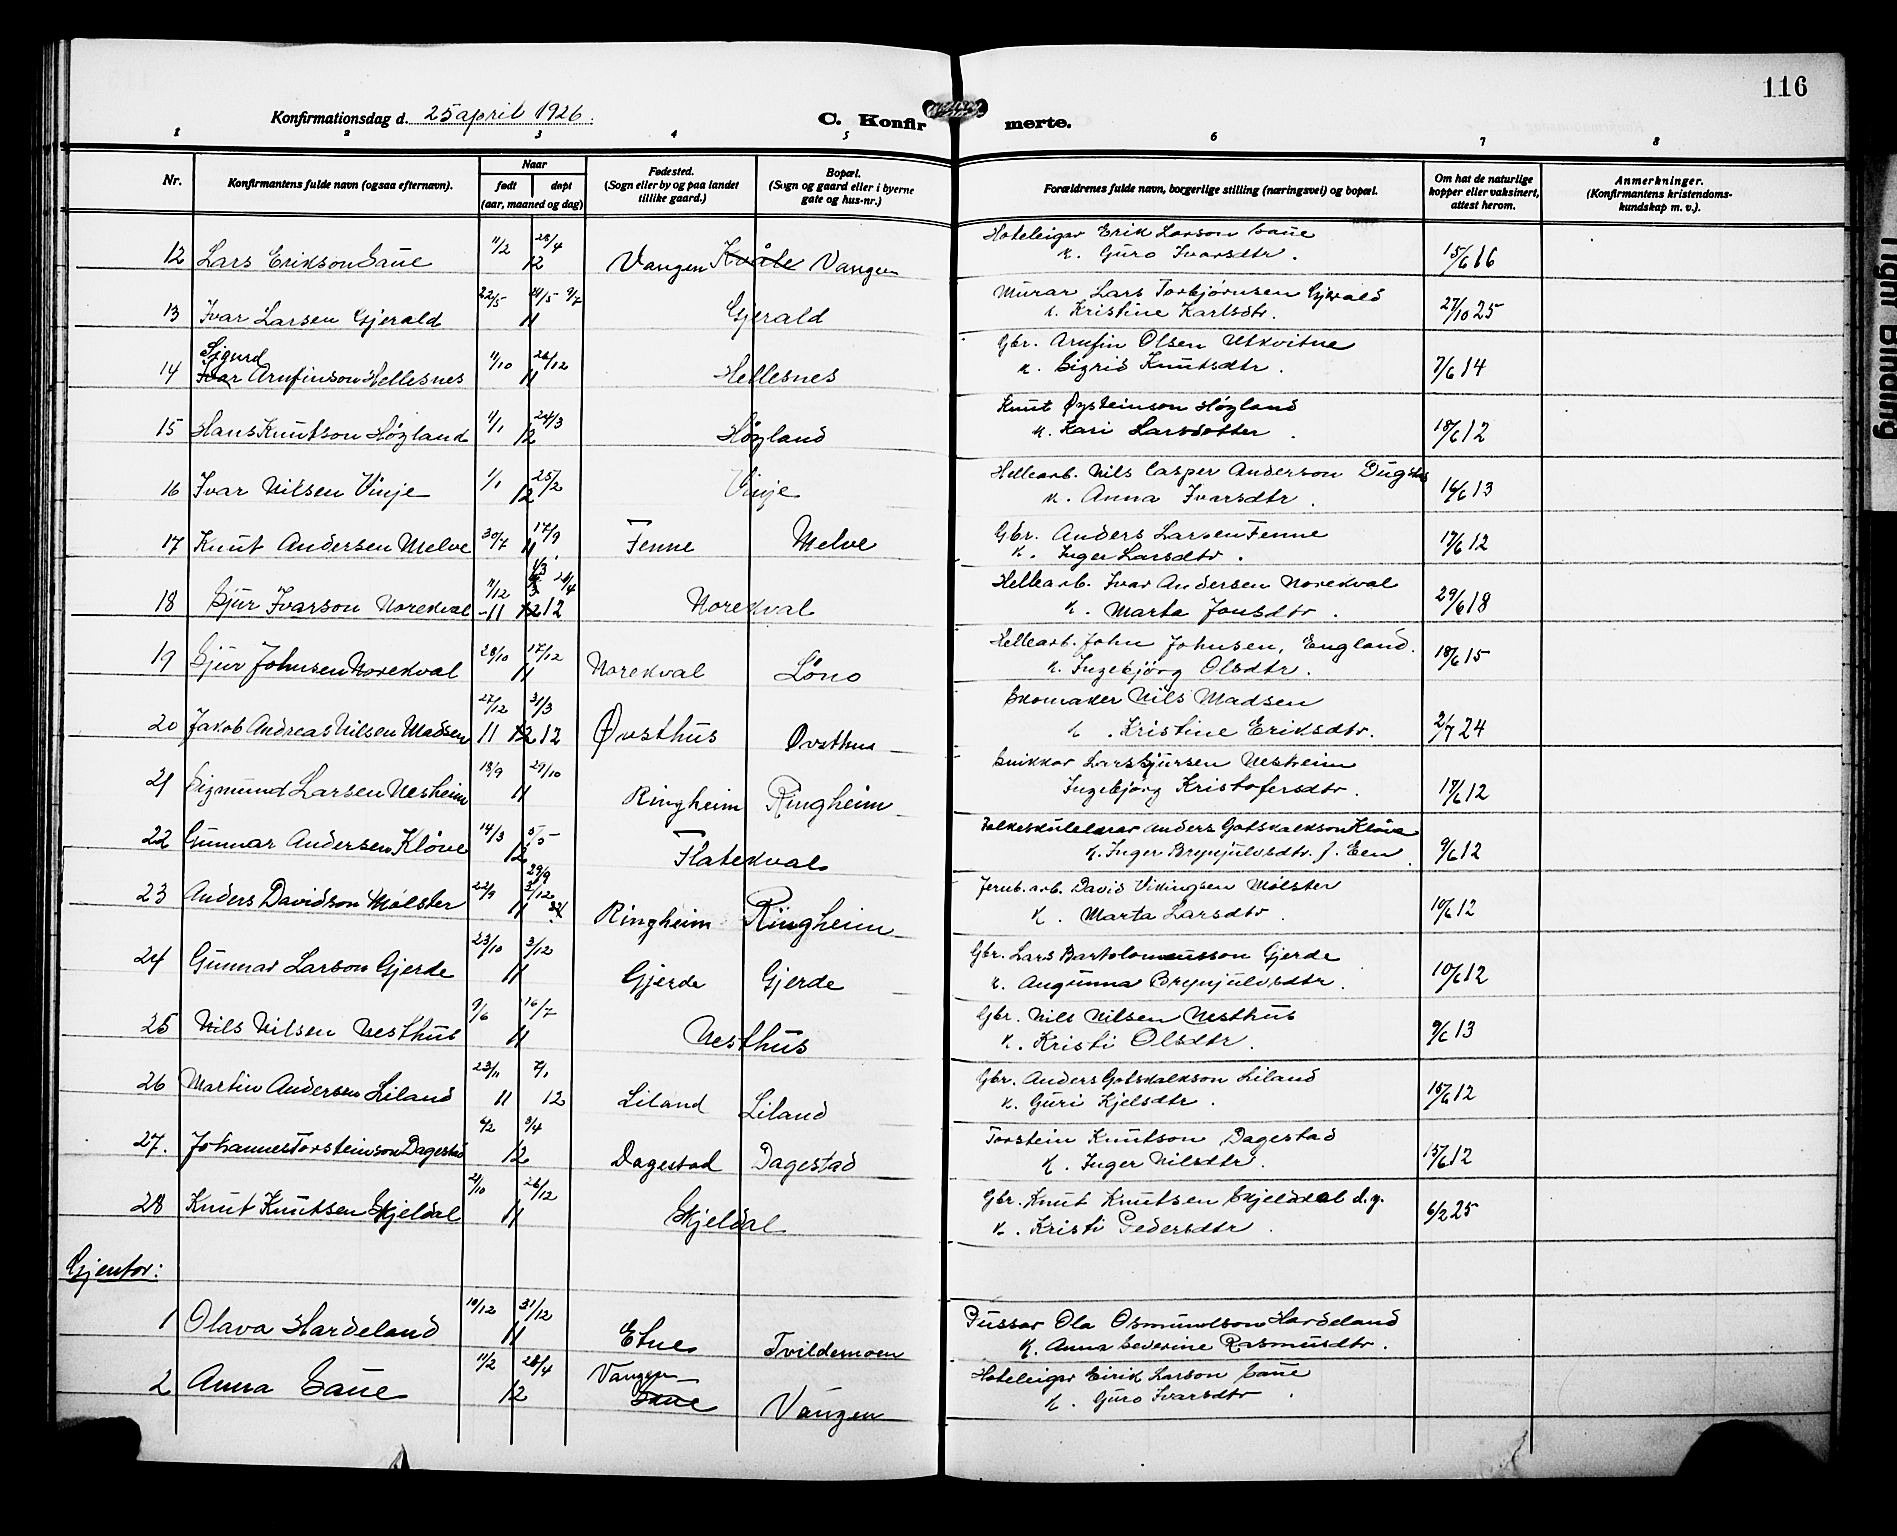 116
Konfirmationsdag d. 25 april 1926.
C. Konfirmerte.
1 2 3 4 5 6 7 8
Nr.
Konfirmantens fulde navn (ogsaa efternavn).
Naar
født
døpt
(aar, maaned og dag)
Fødested.
(Sogn eller by og paa landet
tillike gaard.)
Bopæl.
(Sogn og gaard eller i byerne
gate og hus-nr.)
Forældrenes fulde navn, borgerlige stilling (næringsvei) og bopæl.
Om hat de naturlige
kopper eller vaksinert,
attest herom.
Anmerkninger.
(Konfirmantens kristendoms-
kundskap m. v.).
12 Lars Erikson Saue 11/2 28/4 12 Vangen Kvåle Vangen Hoteleigar Erik Larson Saue
K. Guro Ivarsdtr. 15/6 16
13 Ivar Larsen Gjerald 22/5 9/7 11 Gjerald Murar Lars Torbjørnsen Gjerald
K. Kristine Karlsdtr. 27/10 25
Sigurd
14 Ivar Arnfinson Hellesnes 11/10 26/12 11 Hellesnes Gbr. Arnfin Olsen Utkvitne
K. Sigrid Knutsdtr. 7/6 14
15 Hans Knutson Høgland 11/1 24/3 12 Høgland Knut Øysteinson Høgland
K. Kari Larsdotter. 18/6 12
16 Ivar Nilsen Vinje 1/1 25/2 12 Vinje Hellearb. Nils Casper Anderson Dugstad
K. Anna Ivarsdtr. 16/6 13
17 Knut Andersen Melve 30/7 17/9 11 Fenne Melve Gbr. Anders Larsen Fenne
K. Inger Larsdtr. 17/6 12
18 Sjur Ivarson Norekval 11/12 -11 12 12 Norekval Hellearb. Ivar Andersen Norekval
K. Marta Jonsdtr. 29/6 18
19 Sjur Johnsen Norekval 28/10 17/12 11 Norekval Løno Hellearb. John Johnsen, England.
K. Ingebjørg Olsdtr. 18/6 15
20 Jakob Andreas Nilsen Madsen 27/12 31/3 11 12 12 Øvsthus Øvsthus Skomaker Nils Madsen
K. Kristine Eriksdtr. 2/7 24
21 Sigmund Larsen Nesheim 18/9 29/10 11 Ringheim Ringheim Snikkar Lars Sjursen Nesheim
Ingebjørg Kristofersdtr. 17/6 12
22 Gunnar Andersen Kløve 14/3 5/5 12 Flatekval Folkeskulelærar Anders Gotskalkson Kløve
K. Inger Brynjulvsdtr. f. Een 9/6 12
23 Anders Davidson Mølster 22/9 29/9 11 Ringheim Ringheim Jernb.arb. David Vikingsen Mølster
K. Marta Larsdtr. 10/6 12
24 Gunnar Larson Gjerde 23/10 3/12 11 Gjerde Gjerde Gbr. Lars Bartolomeusson Gjerde
K. Angunna Brynjulvsdtr. 10/6 12
25 Nils Nilsen Nesthus 9/6 16/7 11 Nesthus Gbr. Nils Nilsen Nesthus
K. Kristi Olsdtr. 9/6 13
26 Martin Andersen Liland 23/11 7/1 11 12 Liland Liland Gbr. Anders Gotskalkson Liland
K. Guri Kjelsdtr. 15/6 12
27. Johannes Torsteinson Dagestad 4/2 8/4 12 Dagestad Dagestad Torstein Knutson Dagestad
K. Inger Nilsdtr. 15/6 12
28 Knut Knutsen Skjeldal 21/10 26/12 11 Skjeldal Gbr. Knut Knutsen Skjeldal d.y.
K. Kristi Pedersdtr. 6/2 25
Gjentor:
1 Olava Hardeland 10/12 31/12 11 Etne Tvildemoen Pussar Ola Osmundson Hardeland
K. Anna Severine Rasmusdtr.
2 Anna Saue 11/2 28/4 12 Vangen Saue Vangen Hoteleigar Eirik Larson Saue
K. Guro Ivarsdtr.